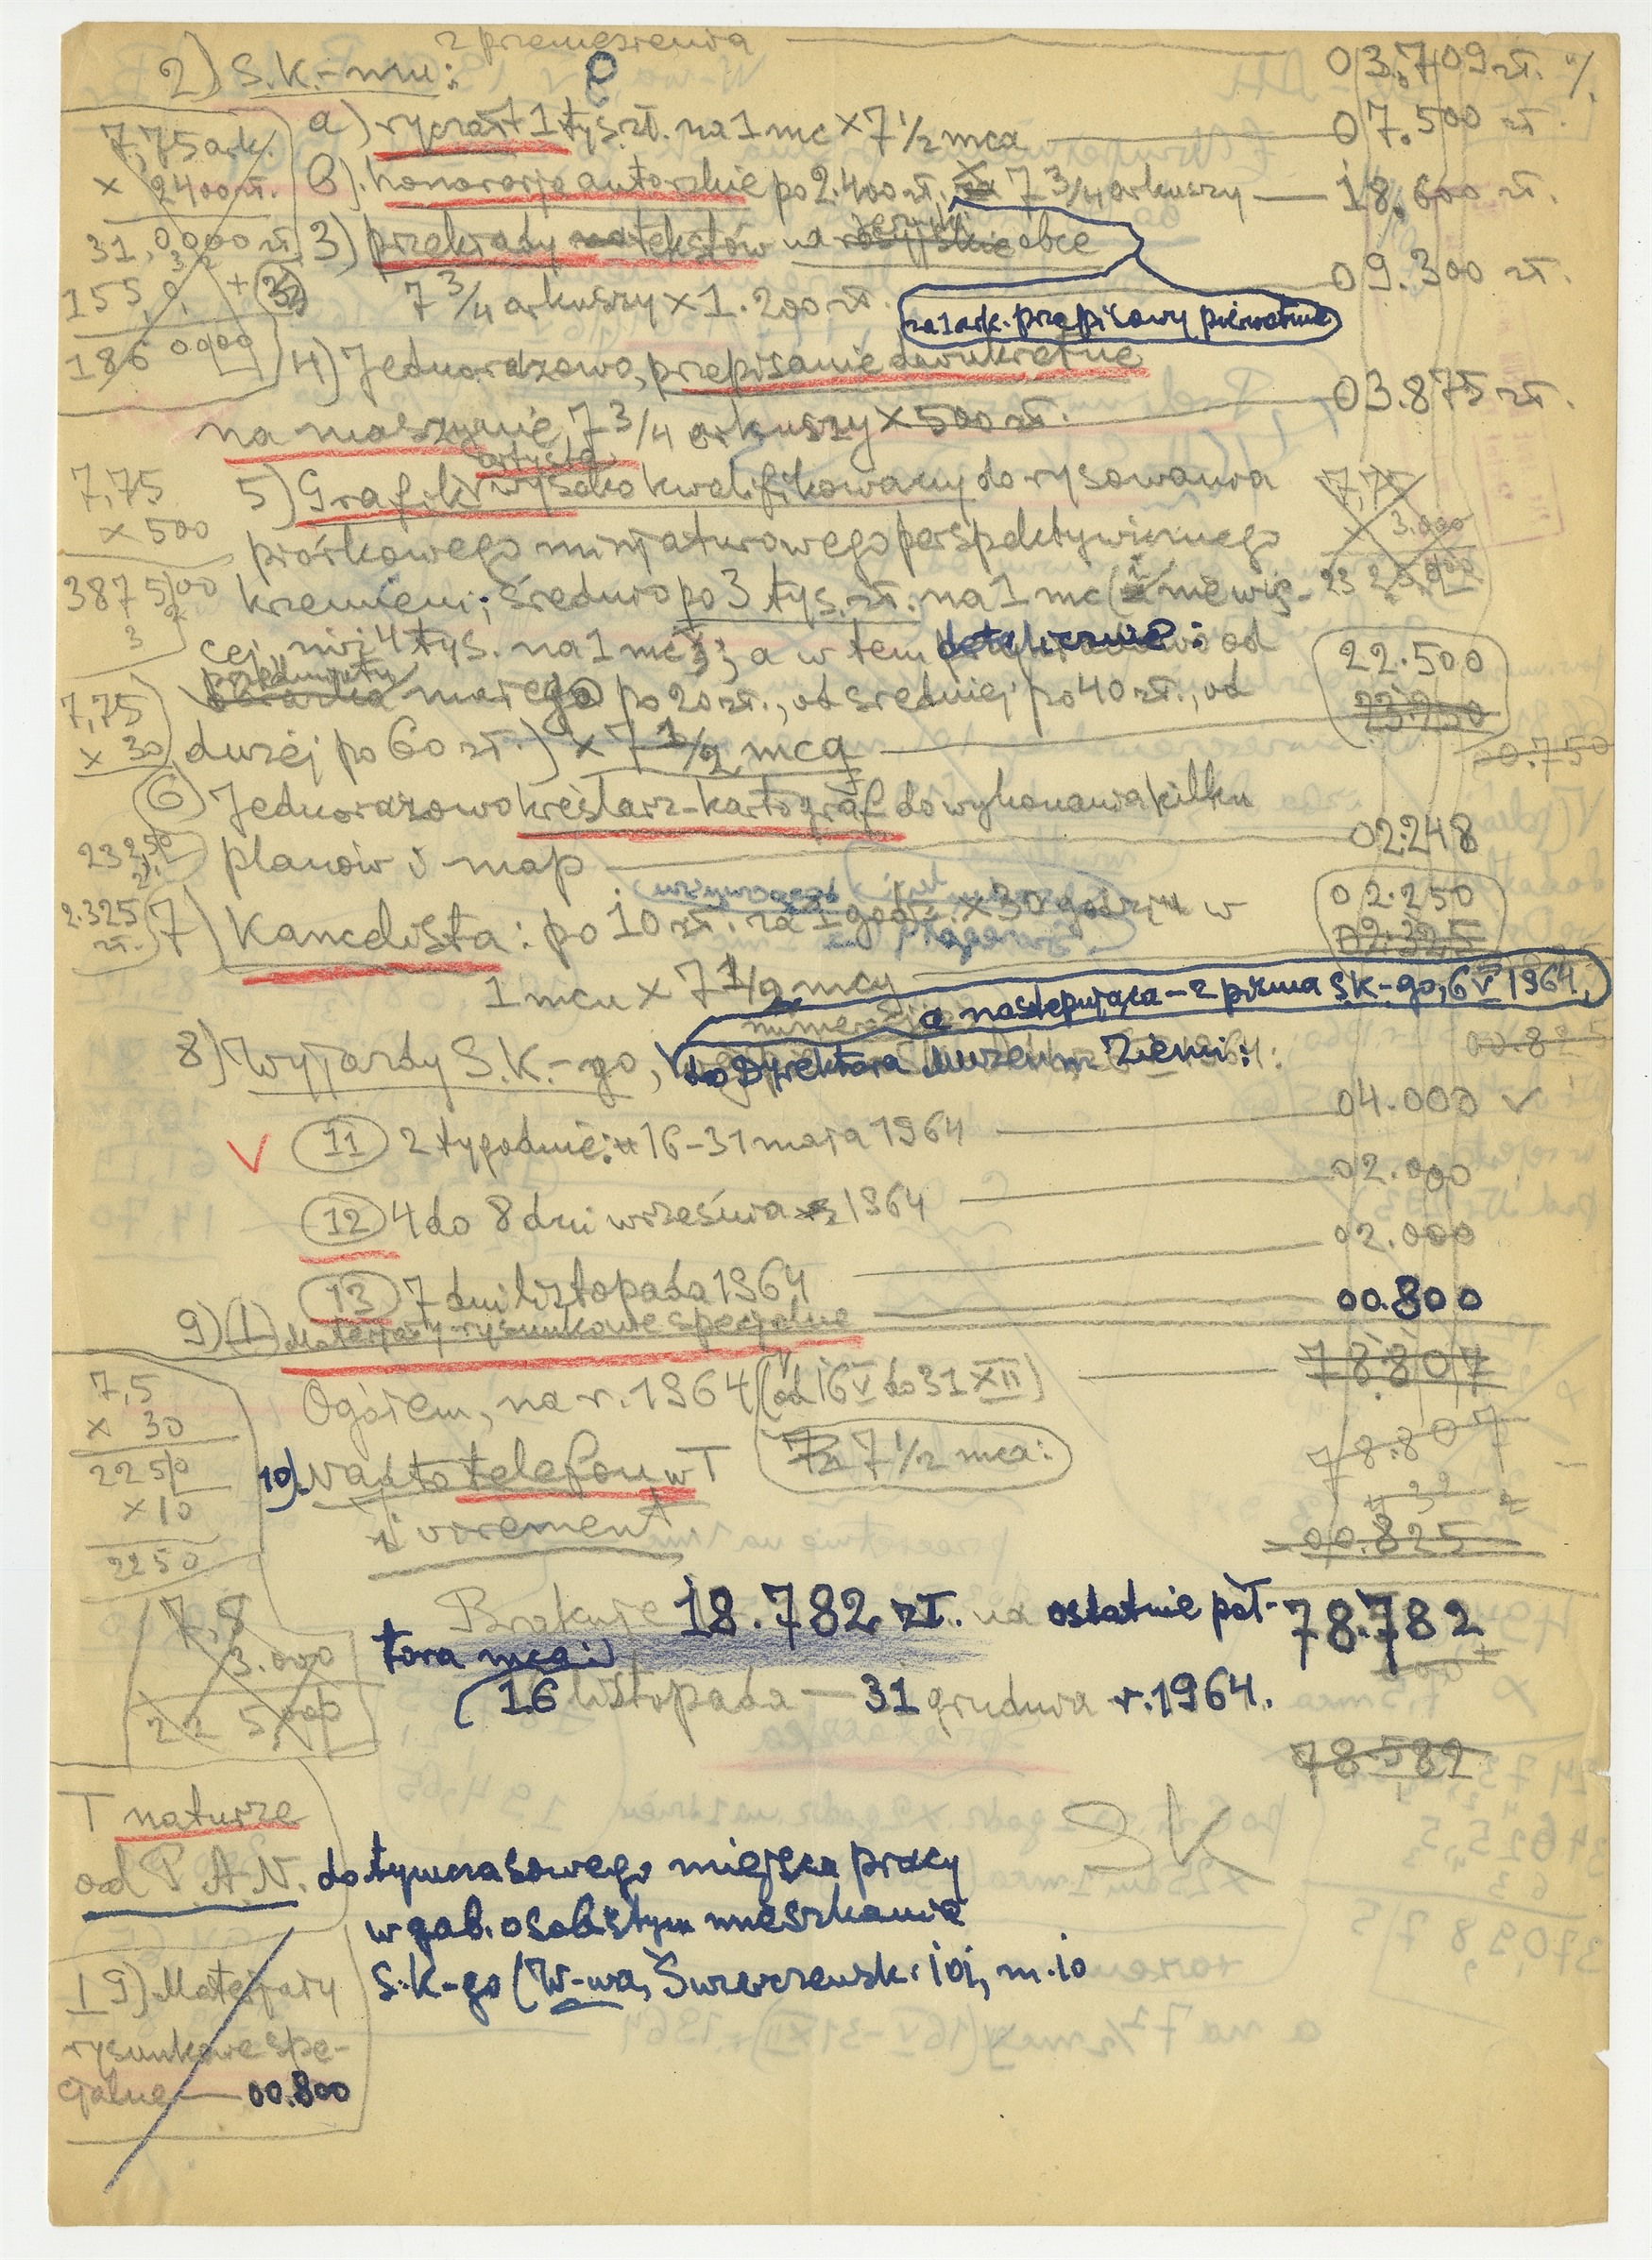 z przeniesienia 03.709 zł. %
2) S.K.-mu:
a) ryczałt 1 tys. zł. na 1 mc × 7 1/2 mca 07.500 zł.
b) honoraria autorskie po 2.400 zł. 7 3/4 arkuszy — 18.600 zł.
za 1 ark. przepisowy pierwotnie
3) przekłady tekstów na obce
7 3/4 arkuszy × 1.200 zł. 09.300 zł.
4) Jednorazowo, przepisanie dwukrotne
na maszynie, 7 3/4 arkuszy × 500 zł. 03.875 zł.
artysta
5) Grafik wysoko kwalifikowany do rysowania
piórkowego minjaturowego perspektywicznego
krzemieni; średnio po 3 tys. zł. na 1 mc (i nie wię-
cej, niż 4 tys. na 1 mc); a w tem detalicznie: od
małego po 20 zł., od średniej po 40 zł., od
dużej po 60 zł.) × 7 1/2 mca 22.500
23.250
00.750
6) Jednorazowo kreślarz-kartograf do wykonania kilku
planów i map 02.248
7) Kancelista: po 10 zł. za 1 godz. × 30 godzin w
1 mcu × 7 1/2 mcy 02.250
02.325
8) Wyjazdy S.K.-go,
a następująca – z pisma SK-go, 6 V 1964,
do Dyrektora Muzeum Ziemi:
00.825
11 2 tygodnie: 16–31 maja 1964 04.000 ✓
12 4 do 8 dni września 1964 02.000
13 7 dni listopada 1964 02.000
9) (1) Materjały rysunkowe specjalne 00.800
Ogółem, na r. 1964 (od 16 V do 31 XII) 78.807
7 1/2 mca:
78.807
10) Nadto telefon w T
00.825
Brakuje 18.782 zł. na ostatnie pół- 78.782
tora mca:
(16 listopada — 31 grudnia r. 1964.
78.582
SK
7,75 ark.
× 2400 zł.
31,0000 zł.
155,0
186 0,000
7,75
× 500
3875,00
7,75
× 30
232,50
2.325 zł.
7,75
× 3.000
23 250,00
7,5
× 30
2250
× 10
2250
7,8
3.000
22 5,000
T naturze
od P.A.N. dotychczasowego miejsca pracy
w gab. osobistym mieszkanie
S.K-go (W-wa, Świerczewsk. 101, m. 10
19) Materjały
rysunkowe spe-
cjalne — 00.800